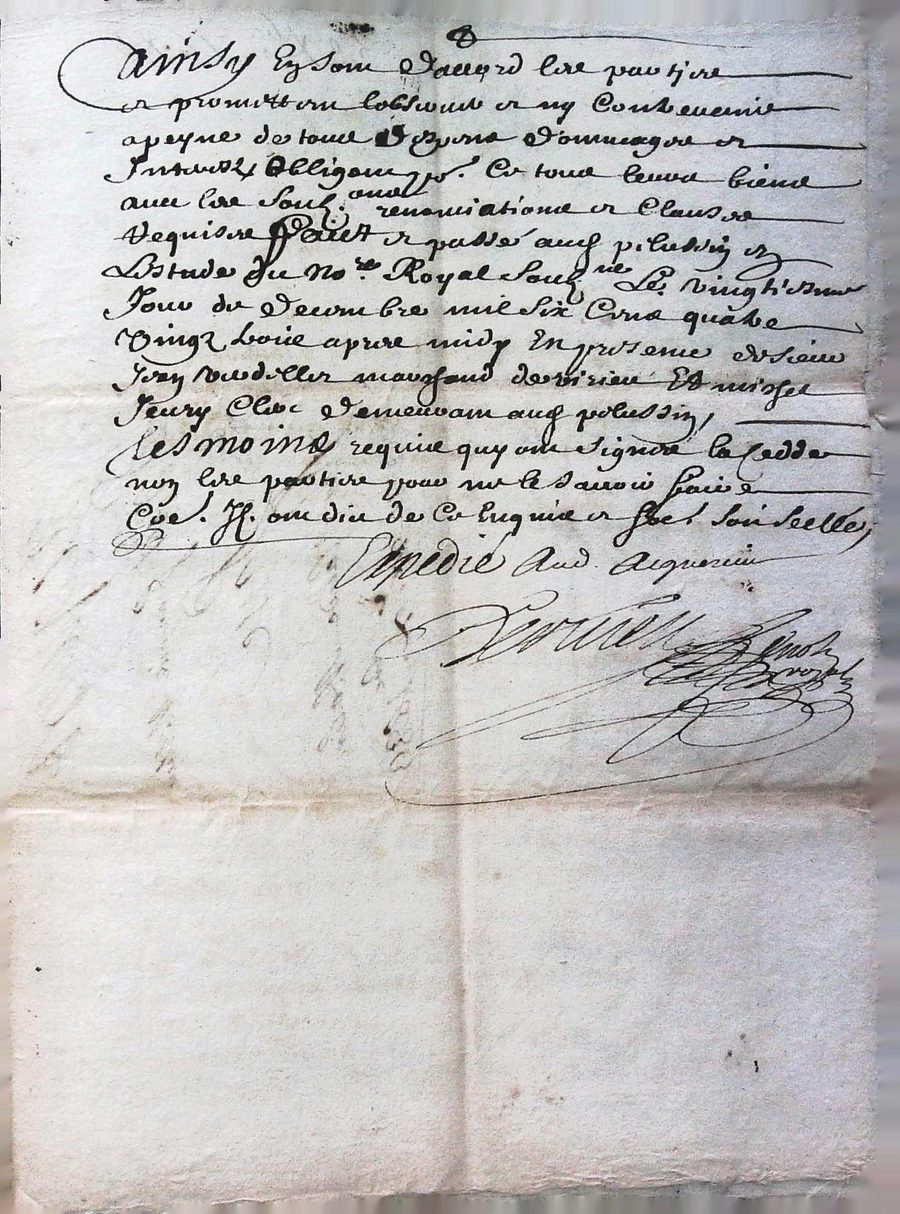 ainsy En sont daccord les parties
et promettent lobserver et ny Contrevenir
a peyne de tous despens dommages et
Interestz obligeant po.r Ce tous leurs biens
avec les soub.ons renonciations et Clauses
requises Faict et passé aud pelussin et
Lestude du No.re Royal soub.né Le vingtiesme
Jour de decembre mil six Cens quatre
vingz trois apres midy En presence de sieur
Jean marchand de virieu Et
Jeury Cloc demeurant aud pelussin,
tesmoins requis quy ont signes la cedde
non les parties pour ne le scavoir faire
Coe. Ilz ont dit de Ce Enquis et soubz son scellé,
Expedié Aud. Acquereur
not.re
royal